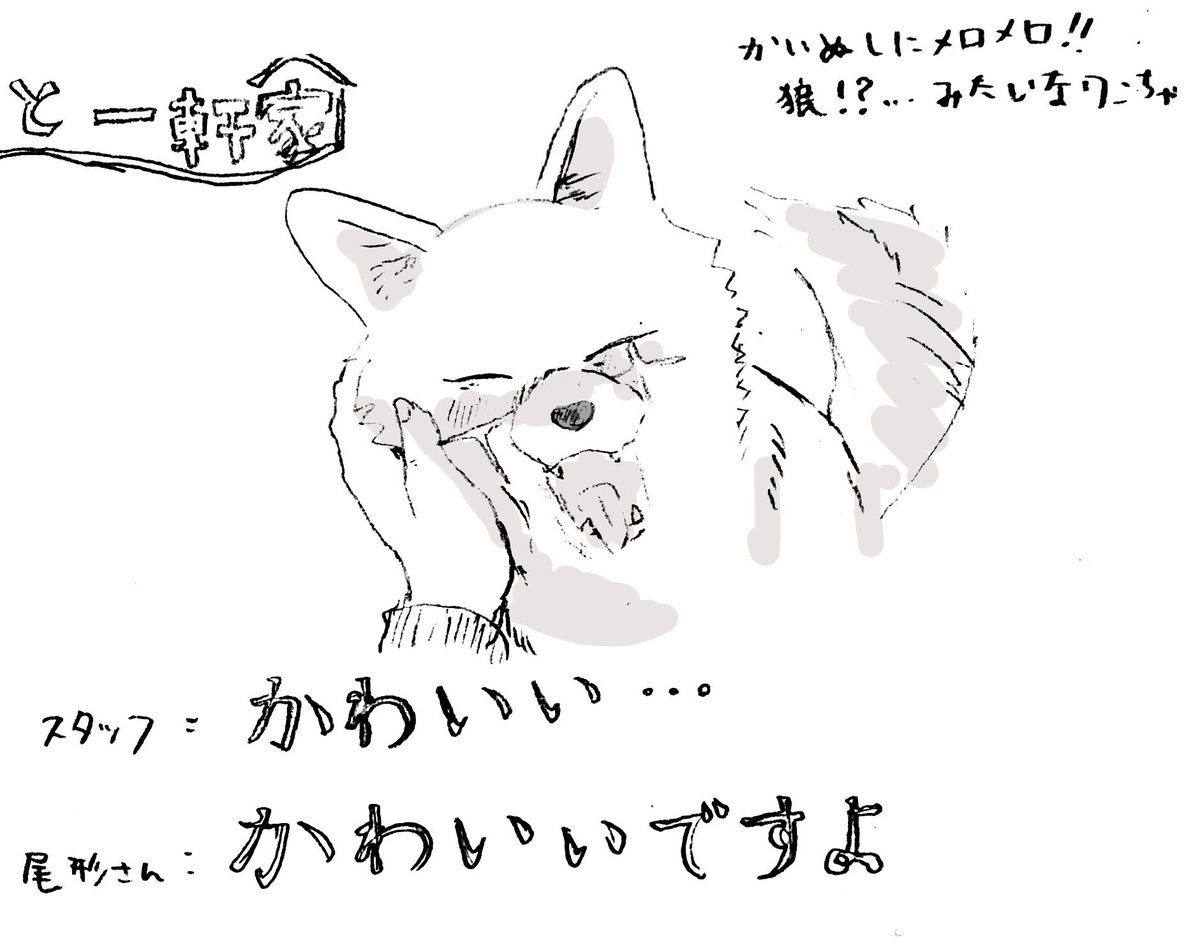 と一軒家
かいぬしにメロメロ!!
狼!?… みたいなりこちゃ
スタッフ: かわいい…
尾形さん: かわいいですよ